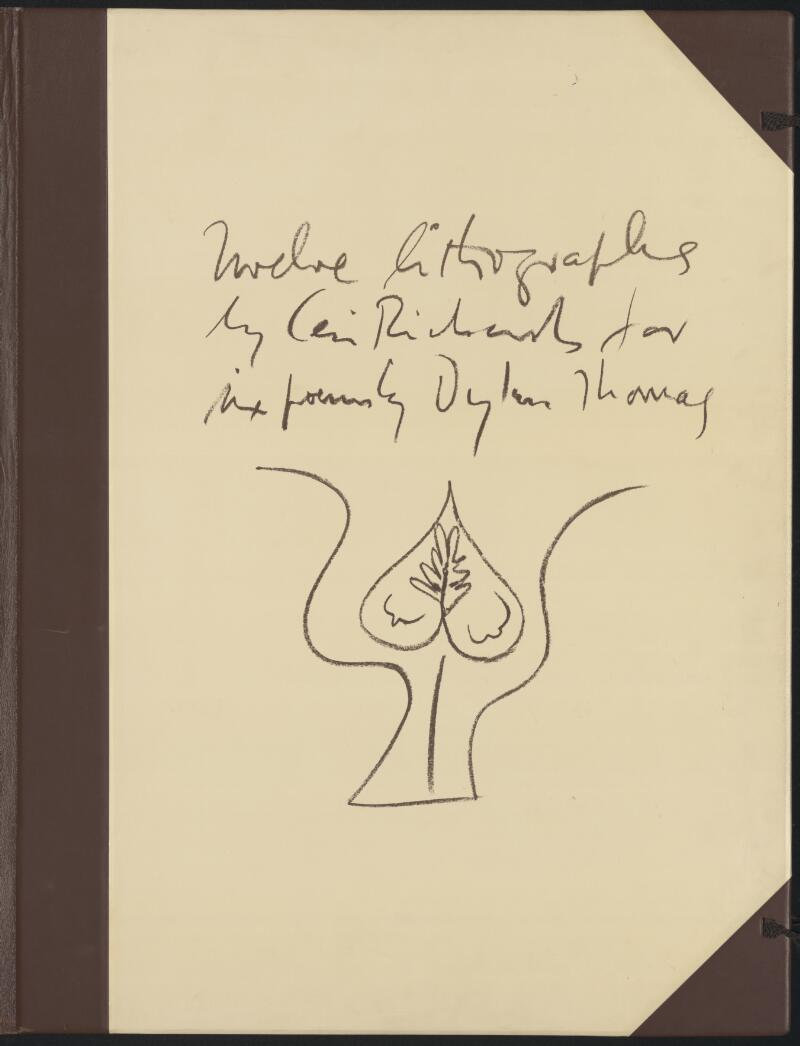 Twelve lithographs
by Ceri Richards for
six poems by Dylan Thomas